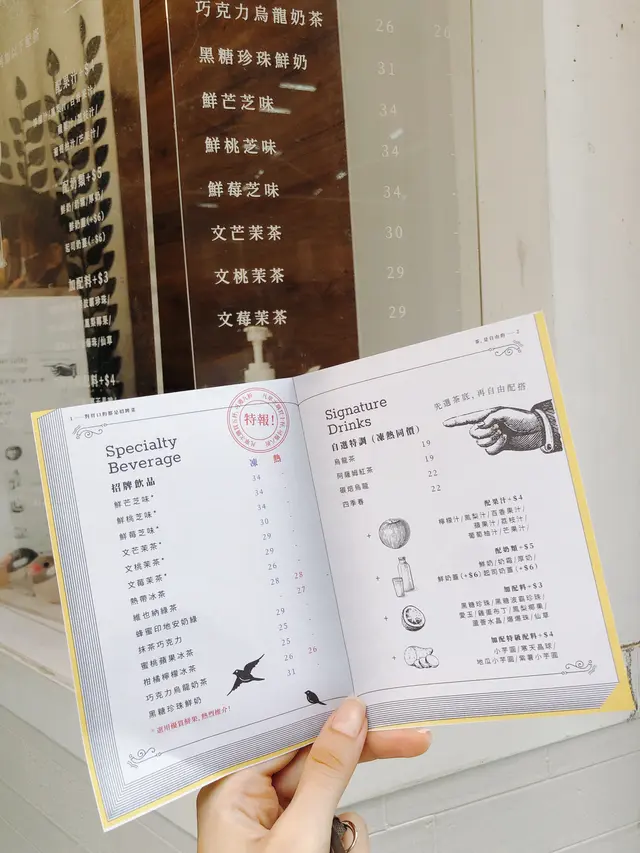 巧克力烏龍奶茶 26 26
黑糖珍珠鮮奶 31
鮮芒芝味 34
鮮桃芝味 34
鮮莓芝味 34
文芒茉茶 30
文桃茉茶 29
文莓茉茶 29
配奶類+$5
鮮奶/奶霜/厚奶/
鮮奶蓋(+$6)
起司奶蓋(+$6)
加配料+$3
特報!
Specialty
Beverage
招牌飲品
凍 熱
鮮芒芝味* 34 -
鮮桃芝味* 34 -
鮮莓芝味* 34 -
文芒茉茶* 30 -
文桃茉茶* 29 -
文莓茉茶* 29 -
熱帶冰茶 26 -
維也納綠茶 28 28
蜂蜜印地安奶綠 - 27
抹茶巧克力 29 -
蜜桃蘋果冰茶 25 -
柑橘檸檬冰茶 25 -
巧克力烏龍奶茶 26 26
黑糖珍珠鮮奶 31 -
*選用優質鮮果,熱烈推介!
茶,是自由的——2
先選茶底,再自由配搭
Signature
Drinks
自選特調 (凍熱同價)
烏龍茶 19
阿薩姆紅茶 19
碳焙烏龍 22
四季春 22
+
配果汁+$4
檸檬汁/鳳梨汁/百香果汁/
蘋果汁/荔枝汁/
葡萄柚汁/芒果汁/
+
配奶類+$5
鮮奶/奶霜/厚奶/
鮮奶蓋(+$6)起司奶蓋(+$6)
+
加配料+$3
黑糖珍珠/黑糖波霸珍珠/
愛玉/雞蛋布丁/鳳梨椰果/
蘆薈水晶/爆爆珠/仙草
+
加配特級配料+$4
小芋圓/寒天晶球/
地瓜小芋圓/紫薯小芋圓